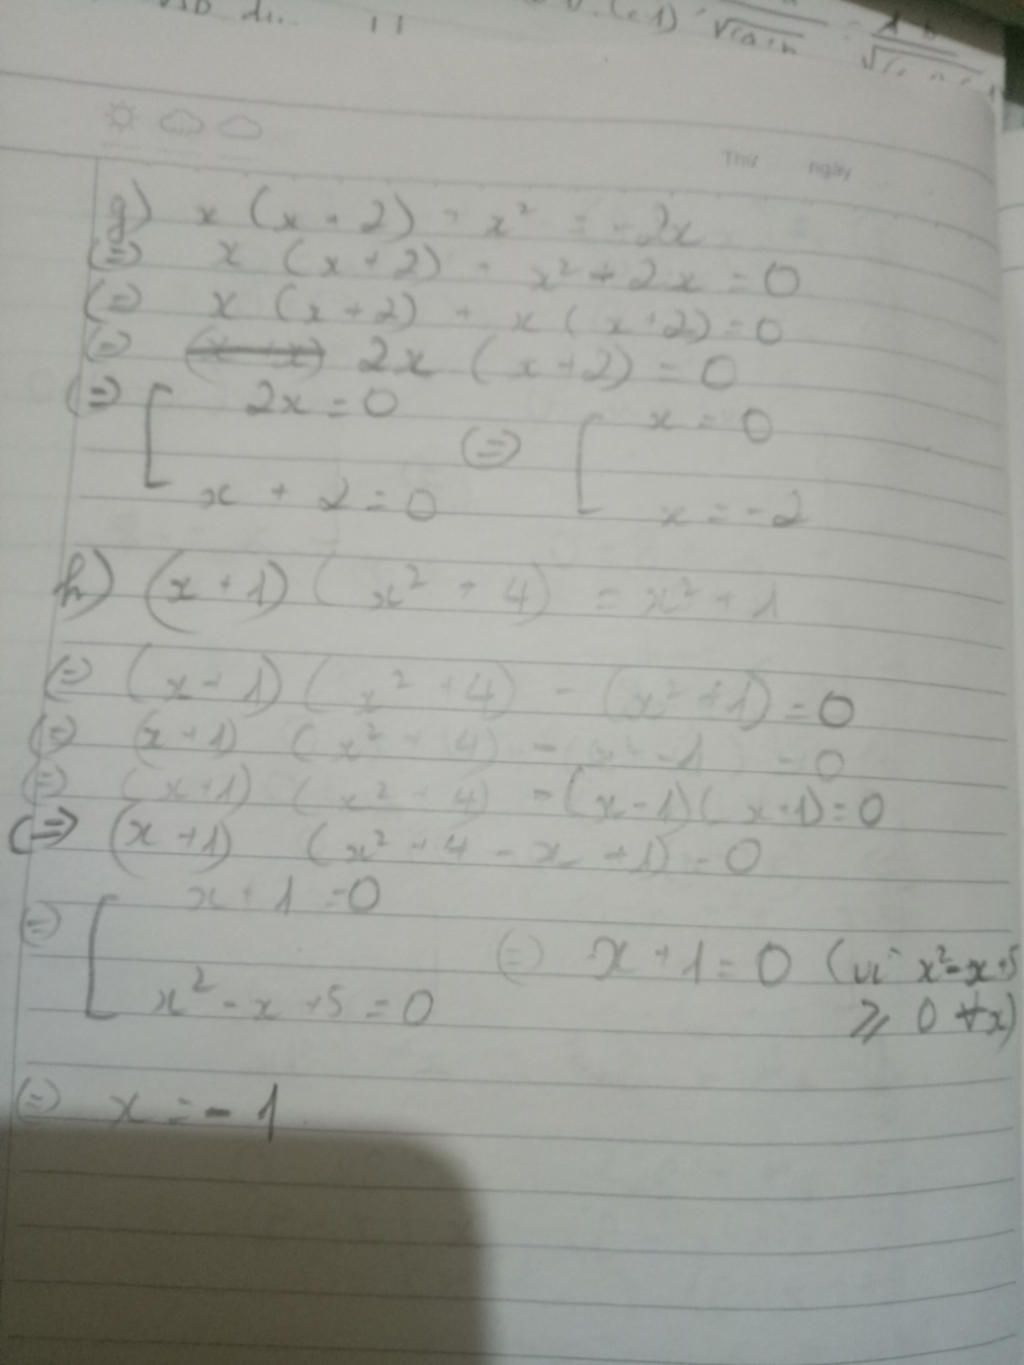 Thứ ngày
g) x (x + 2) + x² = -2x
(=) x (x + 2) + x² + 2x = 0
(=) x (x + 2) + x (x + 2) = 0
(=) 2x (x + 2) = 0
(=) [ 2x = 0
x + 2 = 0
(=) [ x = 0
x = -2
h) (x + 1) (x² + 4) = x² + 1
(=) (x + 1) (x² + 4) - (x² + 1) = 0
(=) (x + 1) (x² + 4) - x² - 1 = 0
(=) (x + 1) (x² + 4) - (x - 1) (x + 1) = 0
(=) (x + 1) (x² + 4 - x + 1) = 0
(=) [ x + 1 = 0
x² - x + 5 = 0
(=) x + 1 = 0 (vì x² - x + 5
≥ 0 ∀x)
(=) x = -1